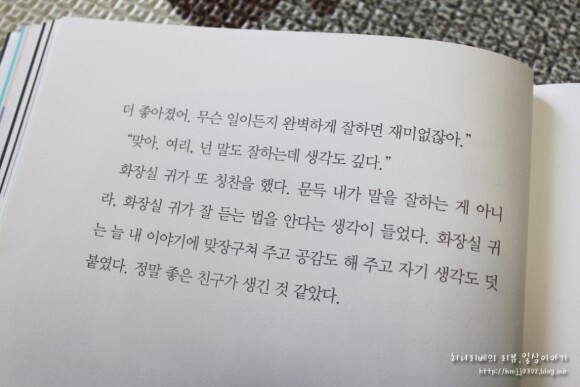 더 좋아졌어. 무슨 일이든지 완벽하게 잘하면 재미없잖아.”
“맞아. 여리, 넌 말도 잘하는데 생각도 깊다.”
화장실 귀가 또 칭찬을 했다. 문득 내가 말을 잘하는 게 아니
라, 화장실 귀가 잘 듣는 법을 안다는 생각이 들었다. 화장실 귀
는 늘 내 이야기에 맞장구쳐 주고 공감도 해 주고 자기 생각도 덧
붙였다. 정말 좋은 친구가 생긴 것 같았다.
리뷰,일상이야기